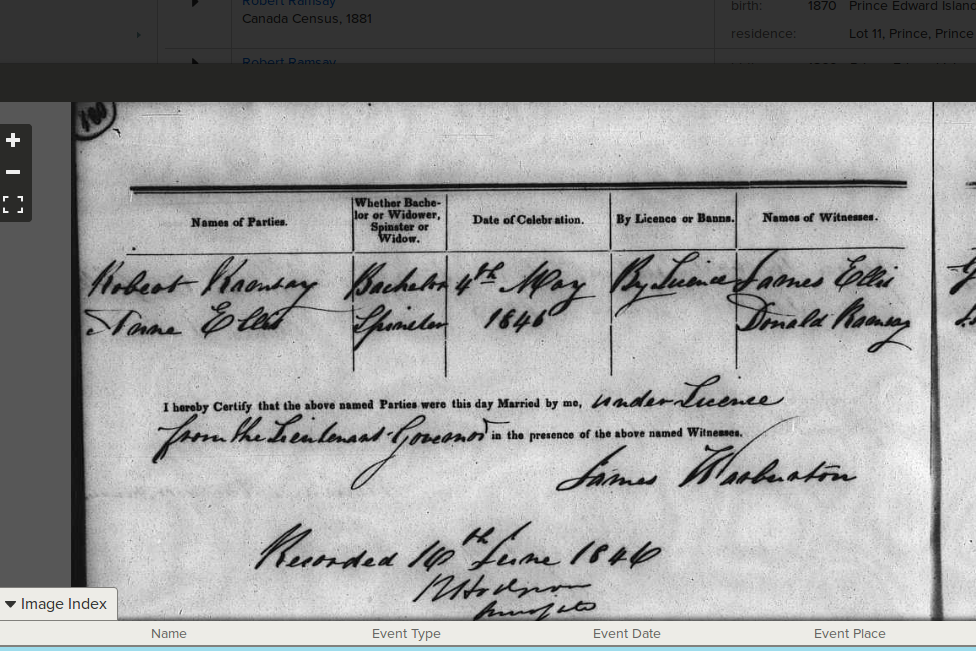 Robert Ramsay
Canada Census, 1881
birth: 1870 Prince Edward Island
residence: Lot 11, Prince, Prince
Robert Ramsay
100
Names of Parties. Whether Bachelor or Widower, Spinster or Widow. Date of Celebration. By Licence or Banns. Names of Witnesses.
Robert Ramsay Bachelor 4th May By Licence James Ellis
Anne Ellis Spinster 1846 Donald Ramsay
I hereby Certify that the above named Parties were this day Married by me, under Licence
from the Lieutenant Governor in the presence of the above named Witnesses.
James Warburton
Recorded 16th June 1846
Image Index
Name Event Type Event Date Event Place